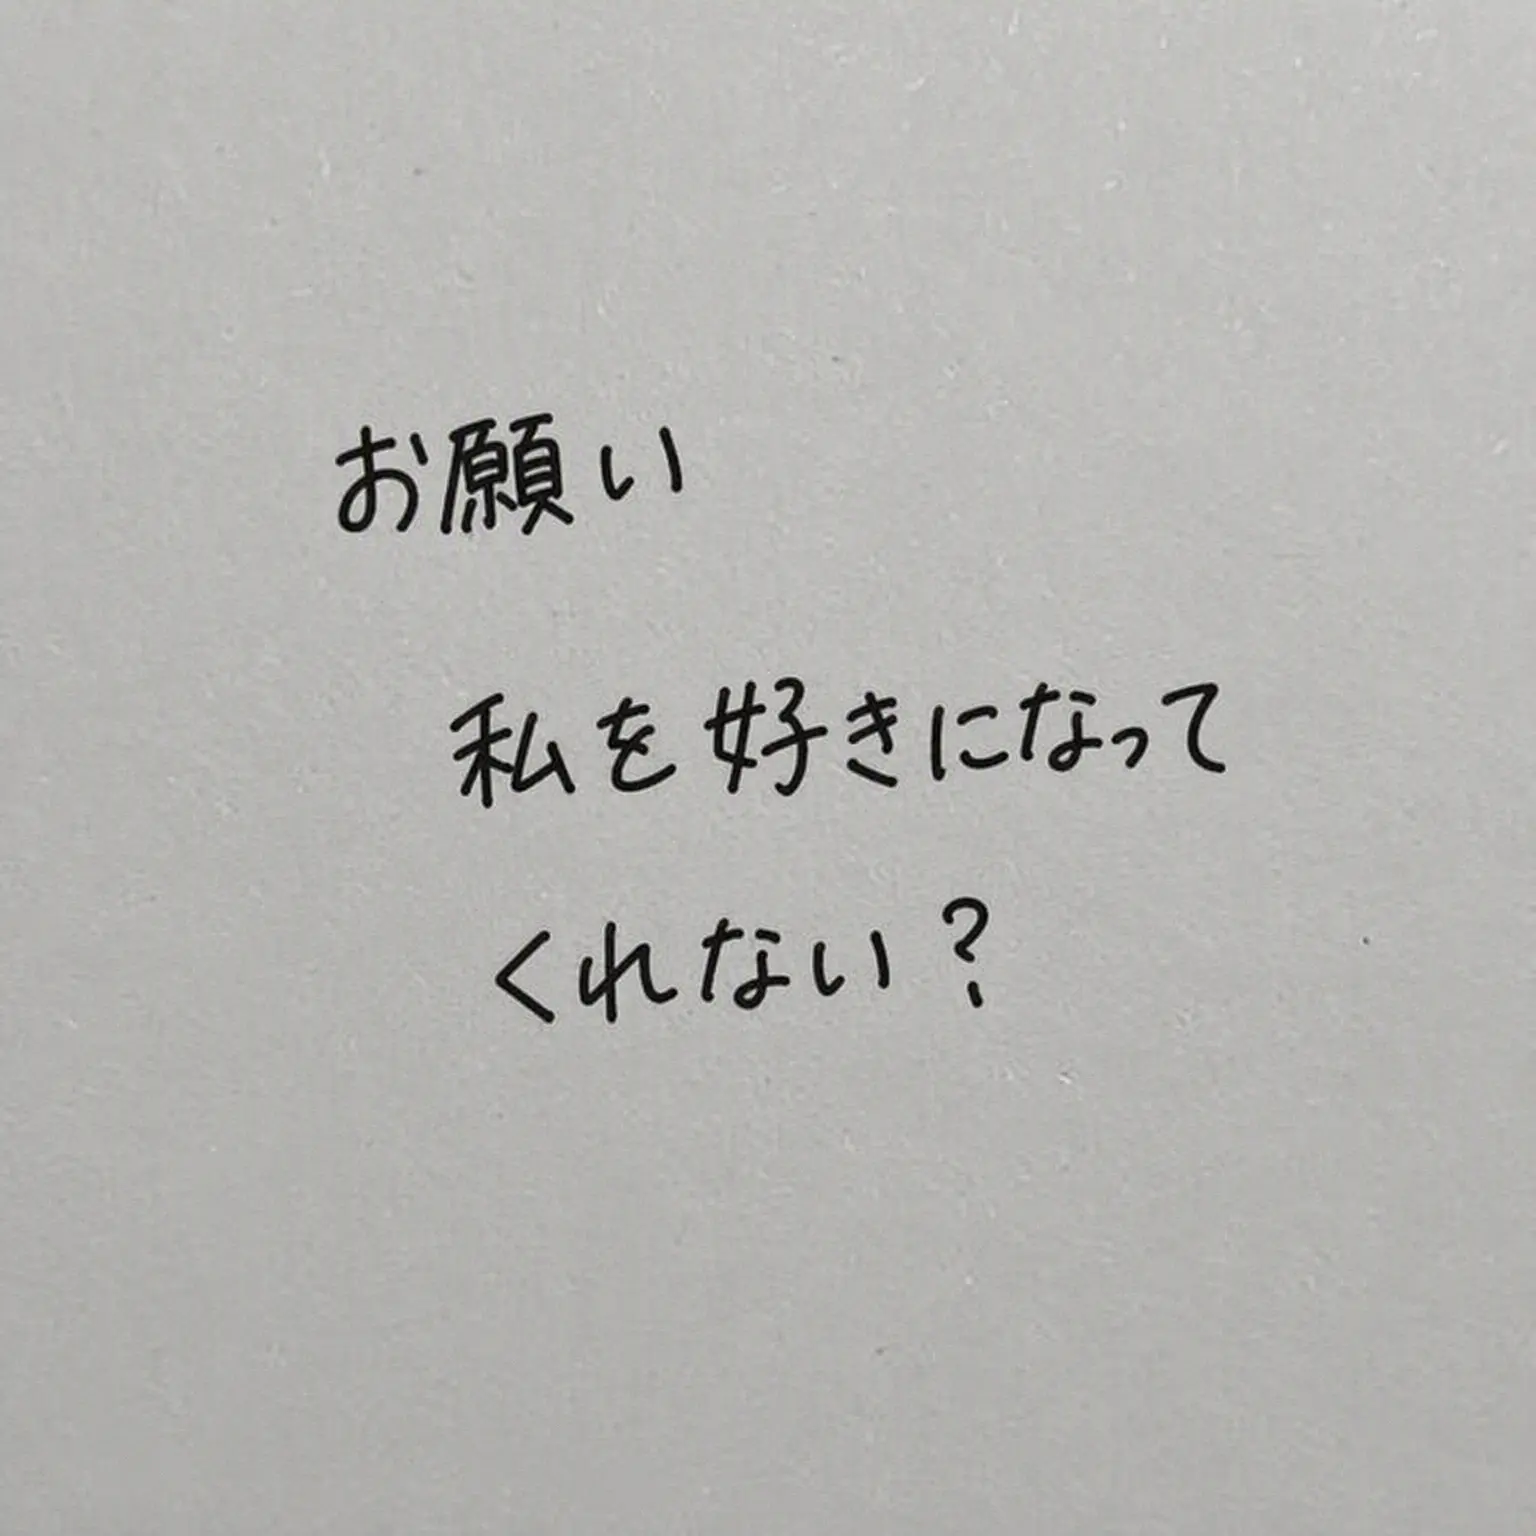 お願い
私を好きになって
くれない?